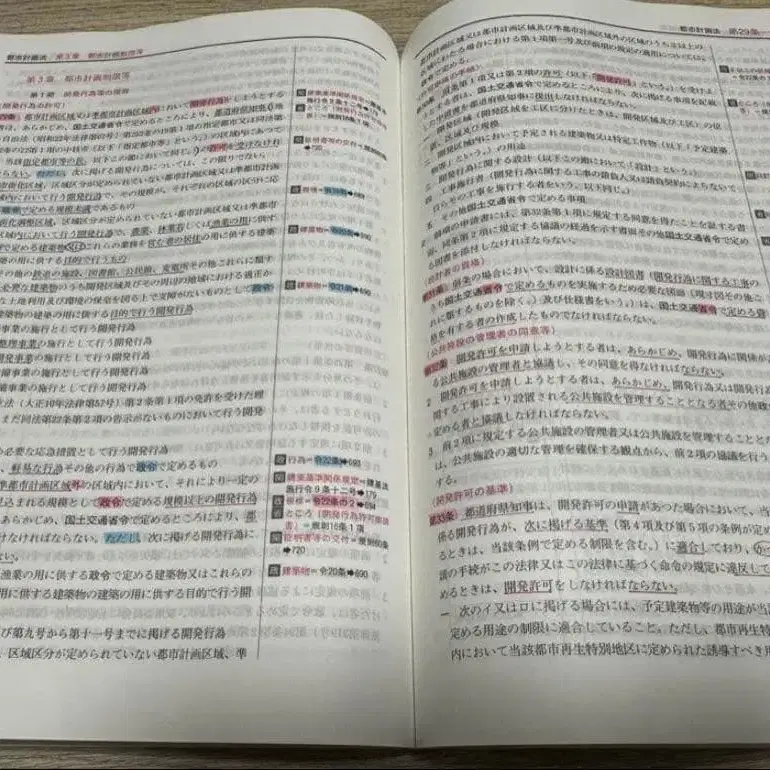 都市計画法 第3章 都市計画制限等
第3章 都市計画制限等
第1節 開発行為等の規制
(開発行為の許可)
都市計画区域又は準都市計画区域内において開発行為をしようとする
は、あらかじめ、国土交通省令で定めるところにより、都道府県知事(地
自治法(昭和22年法律第67号)第252条の19第1項の指定都市又は同法第
の許可を受けなけれ
ただし、次に掲げる開発行為については、この限りでない。
街化区域、区域区分が定められていない都市計画区域又は準都市計画
内において行う開発行為で、その規模が、それぞれの区域の区分に応
政令で定める規模未満であるもの
化調整区域、区域区分が定められていない都市計画区域又は準都市計
区域内において行う開発行為で、農業、林業若しくは漁業の用に供す
で定める建築物又はこれらの業務を営む者の居住の用に供する建築
築の用に供する目的で行うもの
その他の鉄道の施設、図書館、公民館、変電所その他これらに類す
必要な建築物のうち開発区域及びその周辺の地域における適正か
な土地利用及び環境の保全を図る上で支障がないものとして政令
建築物の建築の用に供する目的で行う開発行為
事業の施行として行う開発行為
整理事業の施行として行う開発行為
開発事業の施行として行う開発行為
備事業の施行として行う開発行為
備事業の施行として行う開発行為
立法(大正10年法律第57号)第2条第1項の免許を受けた埋
まだ同法第22条第2項の告示がないものにおいて行う開発
め必要な応急措置として行う開発行為
、軽易な行為その他の行為で政令で定めるもの
準都市計画区域外の区域内において、それにより一定の
見込まれる規模として政令で定める規模以上の開発行為
あらかじめ、国土交通省令で定めるところにより、都
けなければならない。ただし、次に掲げる開発行為に
い。
漁業の用に供する政令で定める建築物又はこれらの
用に供する建築物の建築の用に供する目的で行う開
及び第九号から第十一号までに掲げる開発行為
、区域区分が定められていない都市計画区域、準
建築基準関係規定=建基法
施行令9条十二号➡179
証明書等の交付=規則60条
➡720
規模=令19条➡689
建築物=令20条➡690
建築物=令21条➡690
行為=令22条➡693
建築基準関係規定=建基法
施行令9条十二号➡179
規模=令22条の2➡694
ところ(開発行為許可申請
書)=規則16条1項
証明書等の交付=規則60条
➡720
建築物=令20条➡690
都市計画法 第29条
都市計画区域又は準都市計画区域及び準都市計画区域外の区域のうち2以上の
区域にわたる場合における第1項第一号及び前項の規定の適用については
政令で定める。
前条第1項又は第2項の許可(以下「開発許可」という。)を受けよ
とする者は、国土交通省令で定めるところにより、次に掲げる事項を記載
した申請書を都道府県知事に提出しなければならない。
開発区域(開発区域を工区に分けたときは、開発区域及び工区)の位
置、区域及び規模
開発区域内において予定される建築物又は特定工作物(以下「予定建
築物等」という。)の用途
開発行為に関する設計(以下この節において「設計」という。)
工事施行者(開発行為に関する工事の請負人又は請負契約によらないで
自らその工事を施行する者をいう。以下同じ。)
その他国土交通省令で定める事項
前項の申請書には、第32条第1項に規定する同意を得たことを証する書
面、同条第2項に規定する協議の経過を示す書面その他国土交通省令で定め
る図書を添付しなければならない。
(設計者の資格)
第31条 前条の場合において、設計に係る設計図書(開発行為に関する工事の
うち国土交通省令で定めるものを実施するため必要な図面(現寸図その他こ
れに類するものを除く。)及び仕様書をいう。)は、国土交通省令で定める資
格を有する者の作成したものでなければならない。
(公共施設の管理者の同意等)
第32条 開発許可を申請しようとする者は、あらかじめ、開発行為に関係が
る公共施設の管理者と協議し、その同意を得なければならない。
2 開発許可を申請しようとする者は、あらかじめ、開発行為又は開発行為
関する工事により設置される公共施設を管理することとなる者その他政
定める者と協議しなければならない。
3 前2項に規定する公共施設の管理者又は公共施設を管理することとな
は、公共施設の適切な管理を確保する観点から、前2項の協議を行う
る。
(開発許可の基準)
第33条 都道府県知事は、開発許可の申請があった場合において、当
係る開発行為が、次に掲げる基準(第4項及び第5項の条例が定め
るときは、当該条例で定める制限を含む。)に適合しており、かつ
請の手続がこの法律又はこの法律に基づく命令の規定に違反して
めるときは、開発許可をしなければならない。
一 次のイ又はロに掲げる場合には、予定建築物等の用途が当該
定める用途の制限に適合していること。ただし、都市再生特
内において当該都市再生特別地区に定められた誘導すべき用